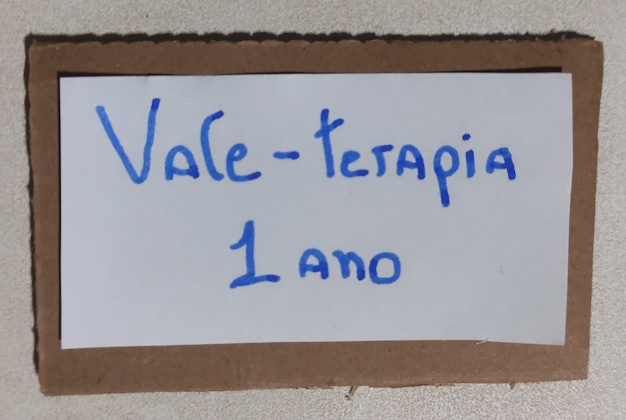 Vale-terapia
1 ano